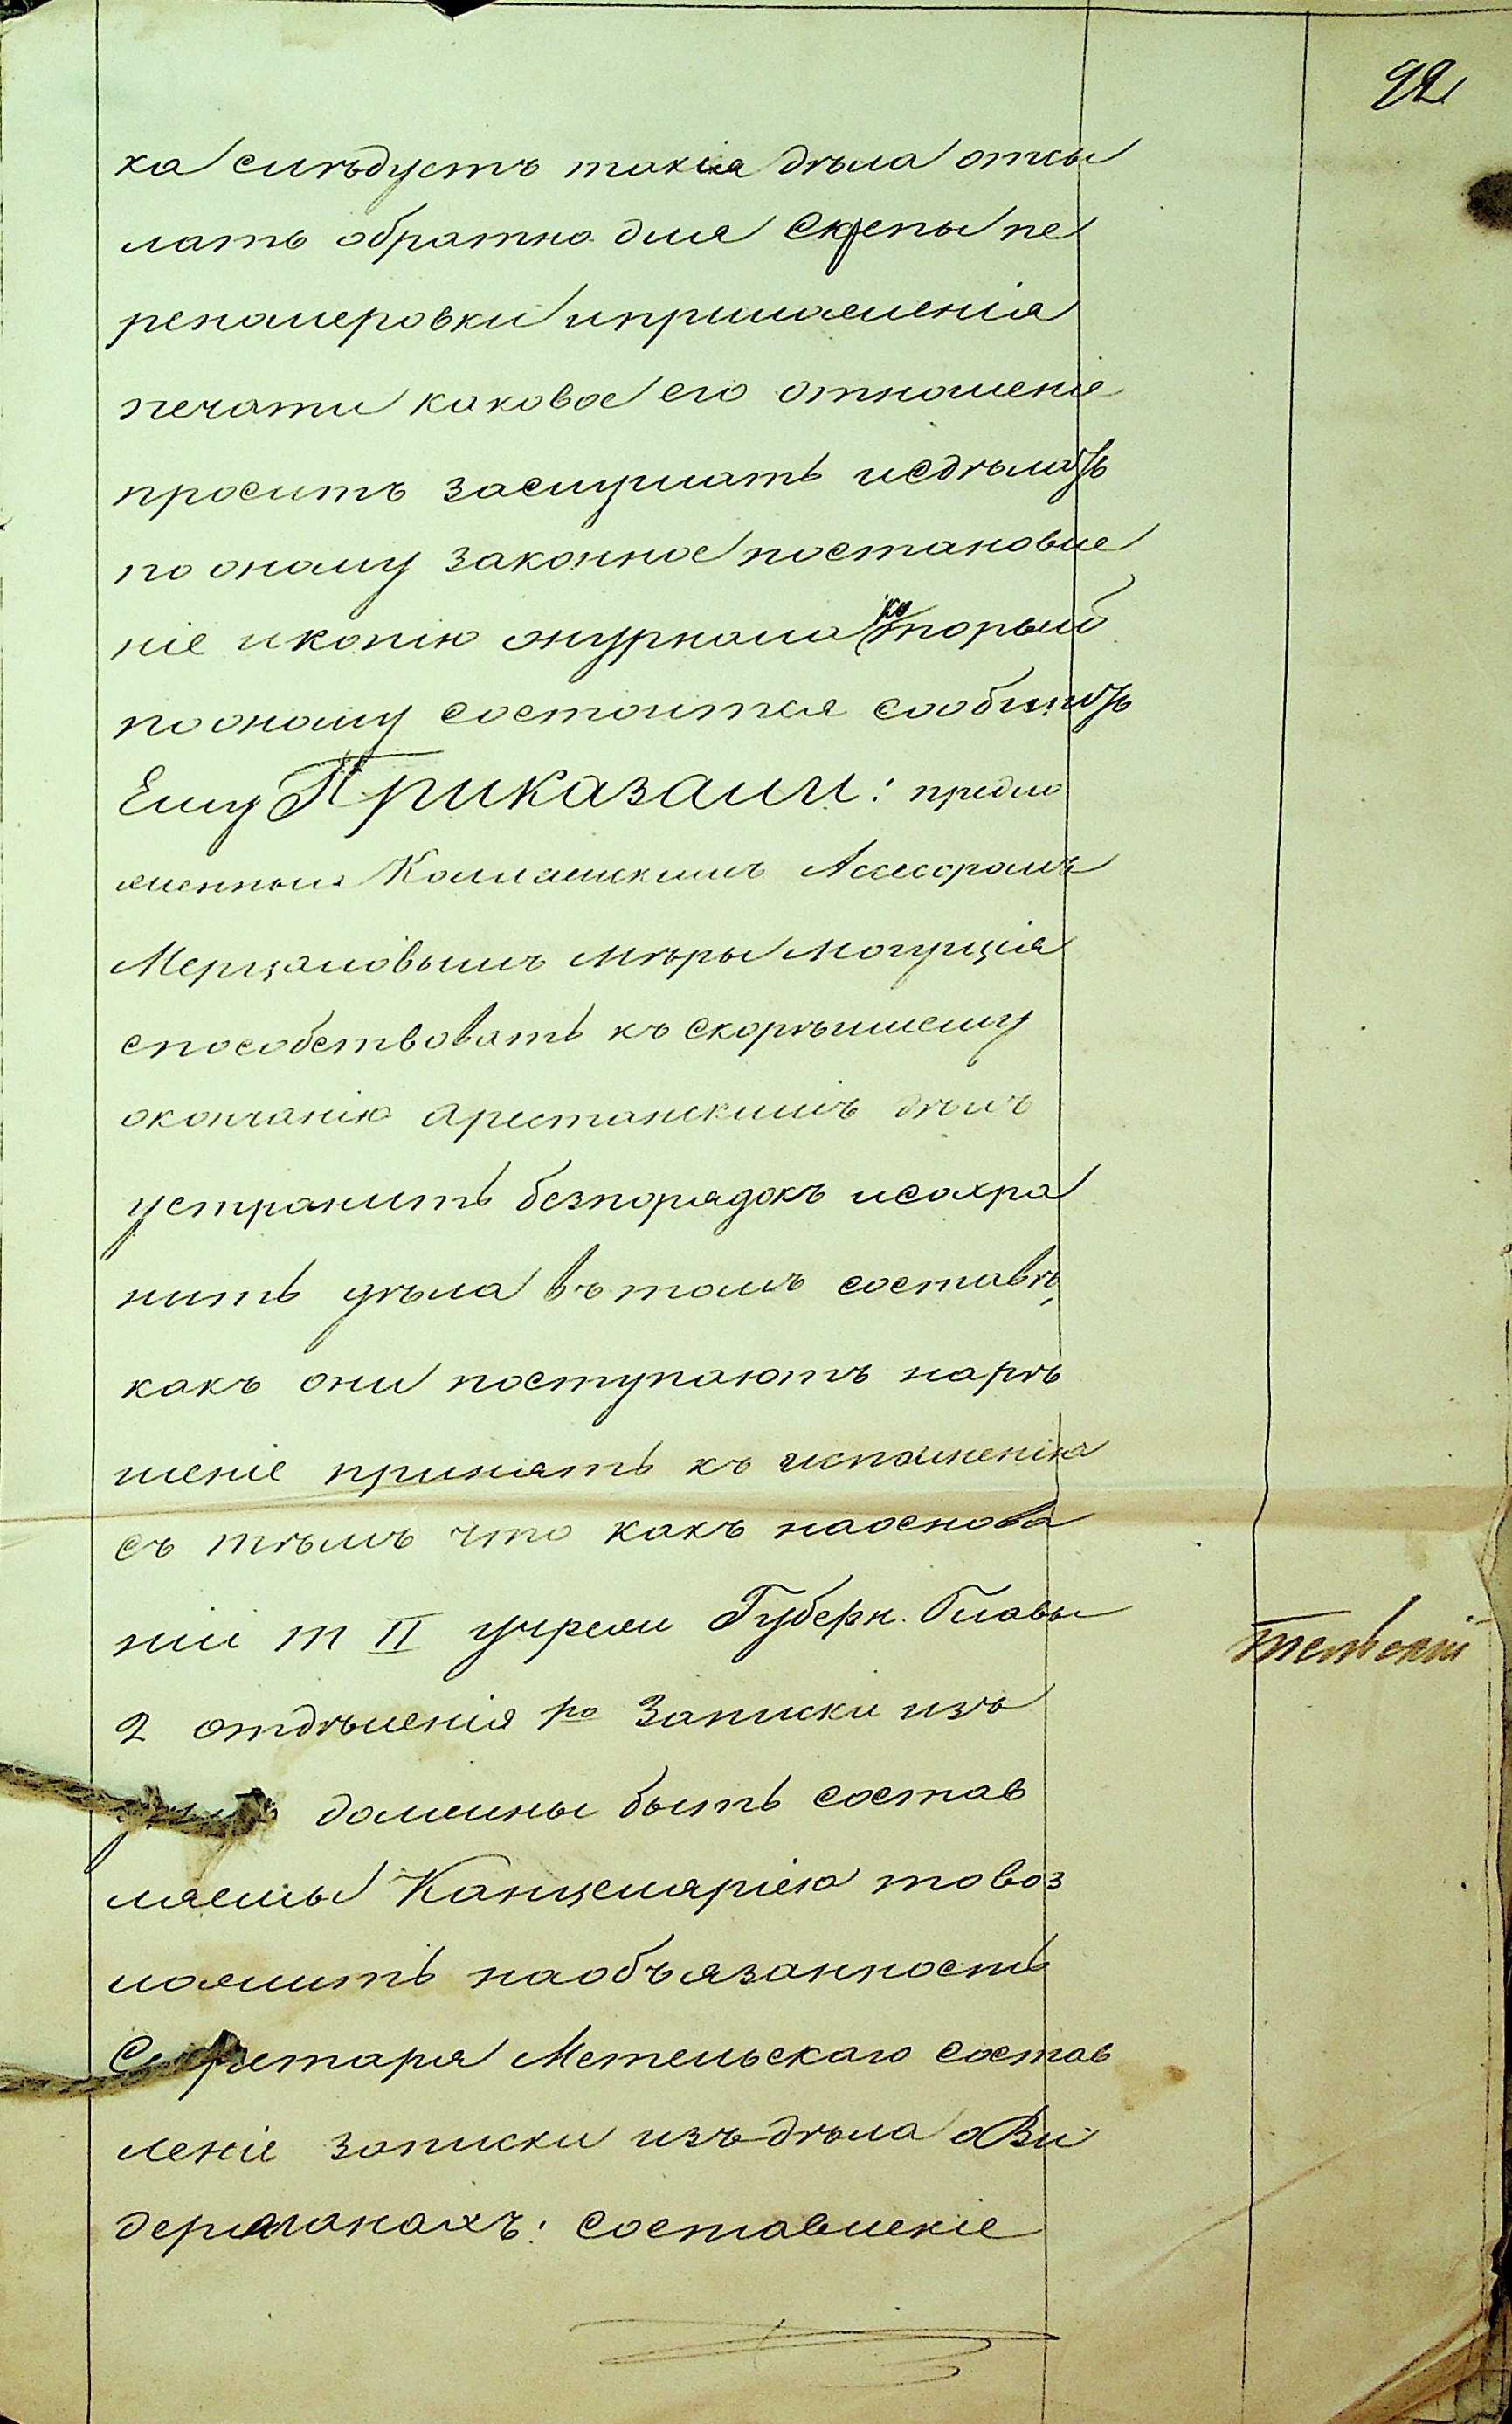 92
ка слѣдуетъ такія дѣла отсы
лать обратно для скрепы пе
реномеровки и приложенія
печати каковое его отношеніе
проситъ заслушать и сдѣлать
по оному законное постановле
ніе и копію журнала который
по оному состоится сообщить
Ему Приказали: предло
женныя Коллежскимъ Асессоромъ
Мерцаловымъ мѣры могущія
способствовать къ скорѣишему
окончанію арестанскимъ дѣлъ
устранить безпорядокъ и сохра
нить дѣла въ томъ составѣ,
какъ они поступаютъ на рѣ
шеніе принять къ исполненію
съ тѣмъ что какъ на основа
ніи т II учреж Губерн. Главы
2 отдѣленія Записки изъ
должны быть состав
ляемы Канцеляріею то воз
ложить на объязанность
Секретаря Метельскаго состав
леніе записки изъ дѣла о Ви
держанахъ: составленіе